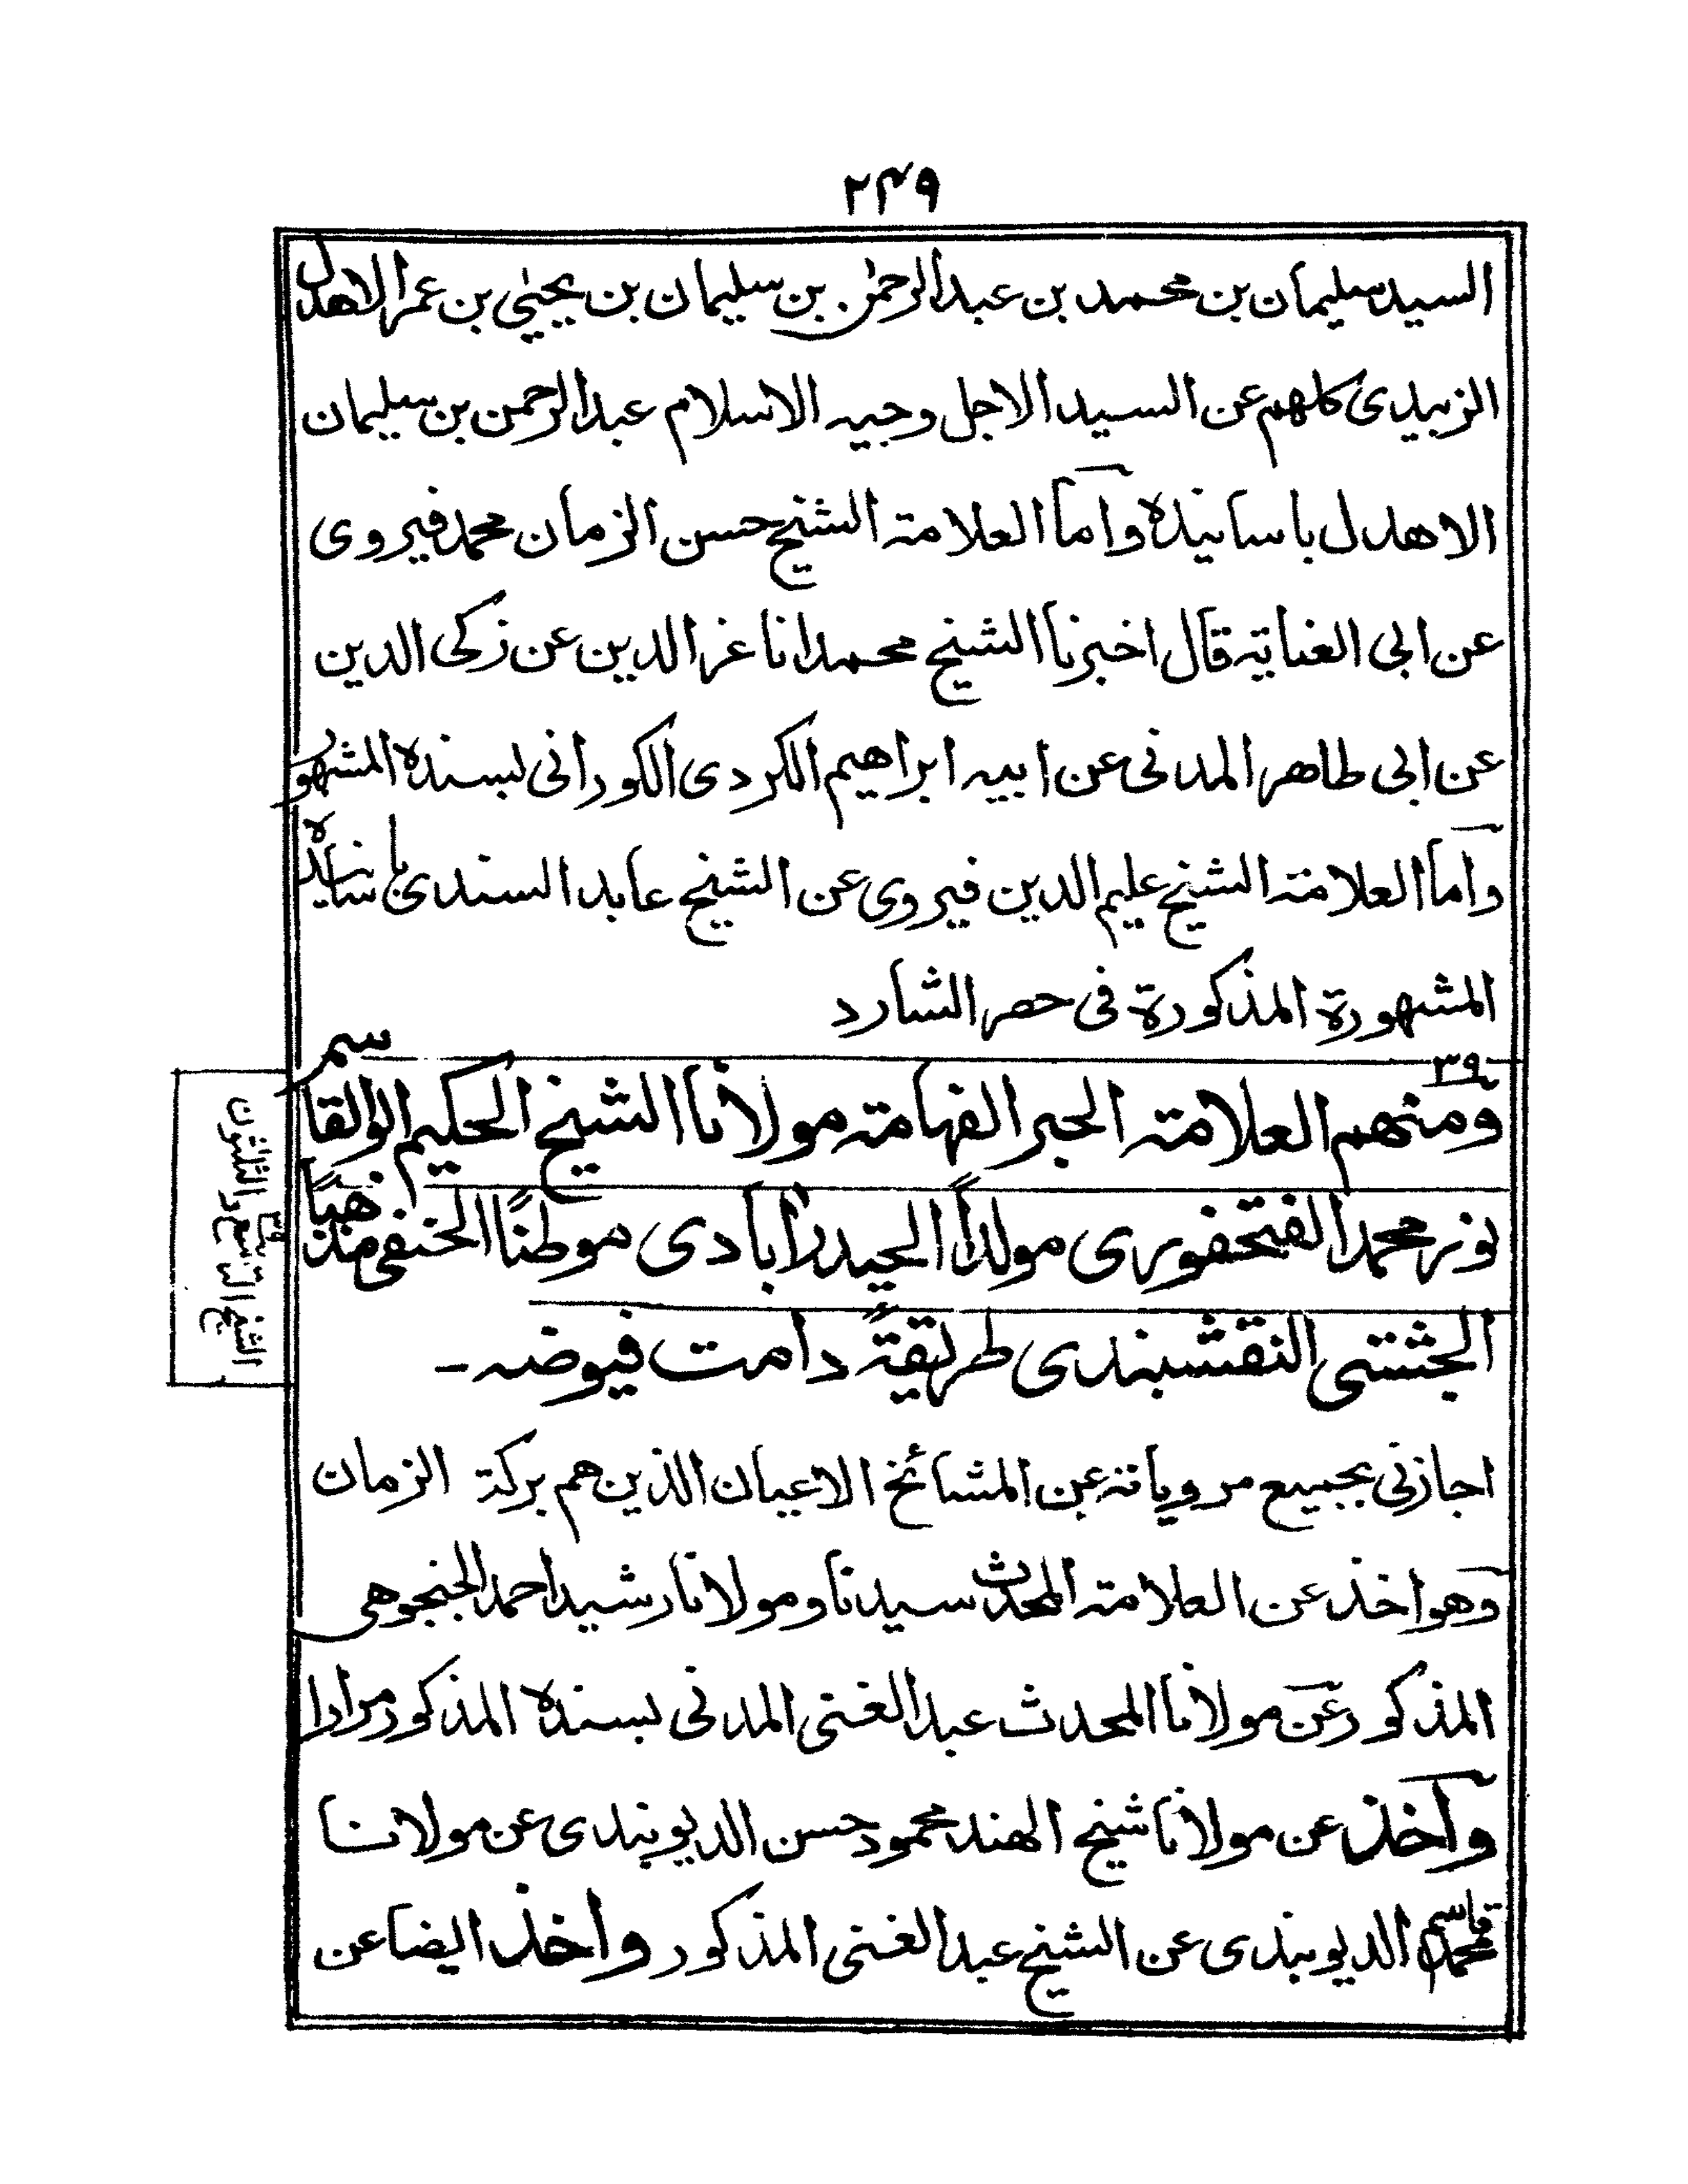 ٢٤٩
السيد سليمان بن محمد بن عبد الرحمٰن بن سليمان بن يحيٰي بن عمر الاهدل
الزبيدى كلهم عن السيد الاجل وجيه الاسلام عبد الرحمن بن سليمان
الاهدل باسانيده واما العلامة الشيخ حسن الزمان محمد فيروى
عن ابى العناية قال اخبرنا الشيخ محمد انا عز الدين عن زكى الدين
عن ابى طاهر المدنى عن ابيه ابراهيم الكردى الكورانى بسنده المشهور
واما العلامة الشيخ عليم الدين فيروى عن الشيخ عابد السندى باسانيده
المشهورة المذكورة فى حصر الشارد
٣٩
ومنهم العلامة الحبر الفهامة مولانا الشيخ الحكيم ابو القاسم
نور محمد الفتحفورى مولداً الحيدرآبادى موطنًا الحنفى مذهبًا
الچشتى النقشبندى طريقةً دامت فيوضه -
الشيخ التاسع والثلثون
اجازنى بجميع مروياته عن المشائخ الاعيان الذين هم بركة الزمان
وهو اخذ عن العلامة المحدث سيدنا ومولانا رشيد احمد الجنجوهى
المذكور عن مولانا المحدث عبد الغنى المدنى بسنده المذكور مرارا
واخذ عن مولانا شيخ الهند محمود حسن الديوبندى عن مولانا
محمد قاسم الديوبندى عن الشيخ عبد الغنى المذكور واخذ ايضا عن